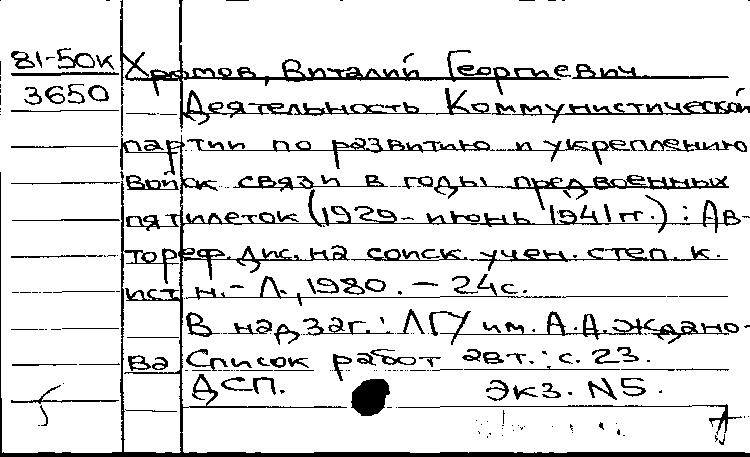 81-50к Хромов, Виталий Георгиевич.
3650 Деятельность Коммунистической
партии по развитию и укреплению
войск связи в годы предвоенных
пятилеток (1929-июнь 1941 гг.) : Ав-
тореф. дис. на соиск. учен. степ. к.
ист. н. - Л., 1980. - 24с.
В надзаг.: ЛГУ им. А.А. Ждано-
ва Список работ авт.: с. 23.
ДСП. Экз. N5.